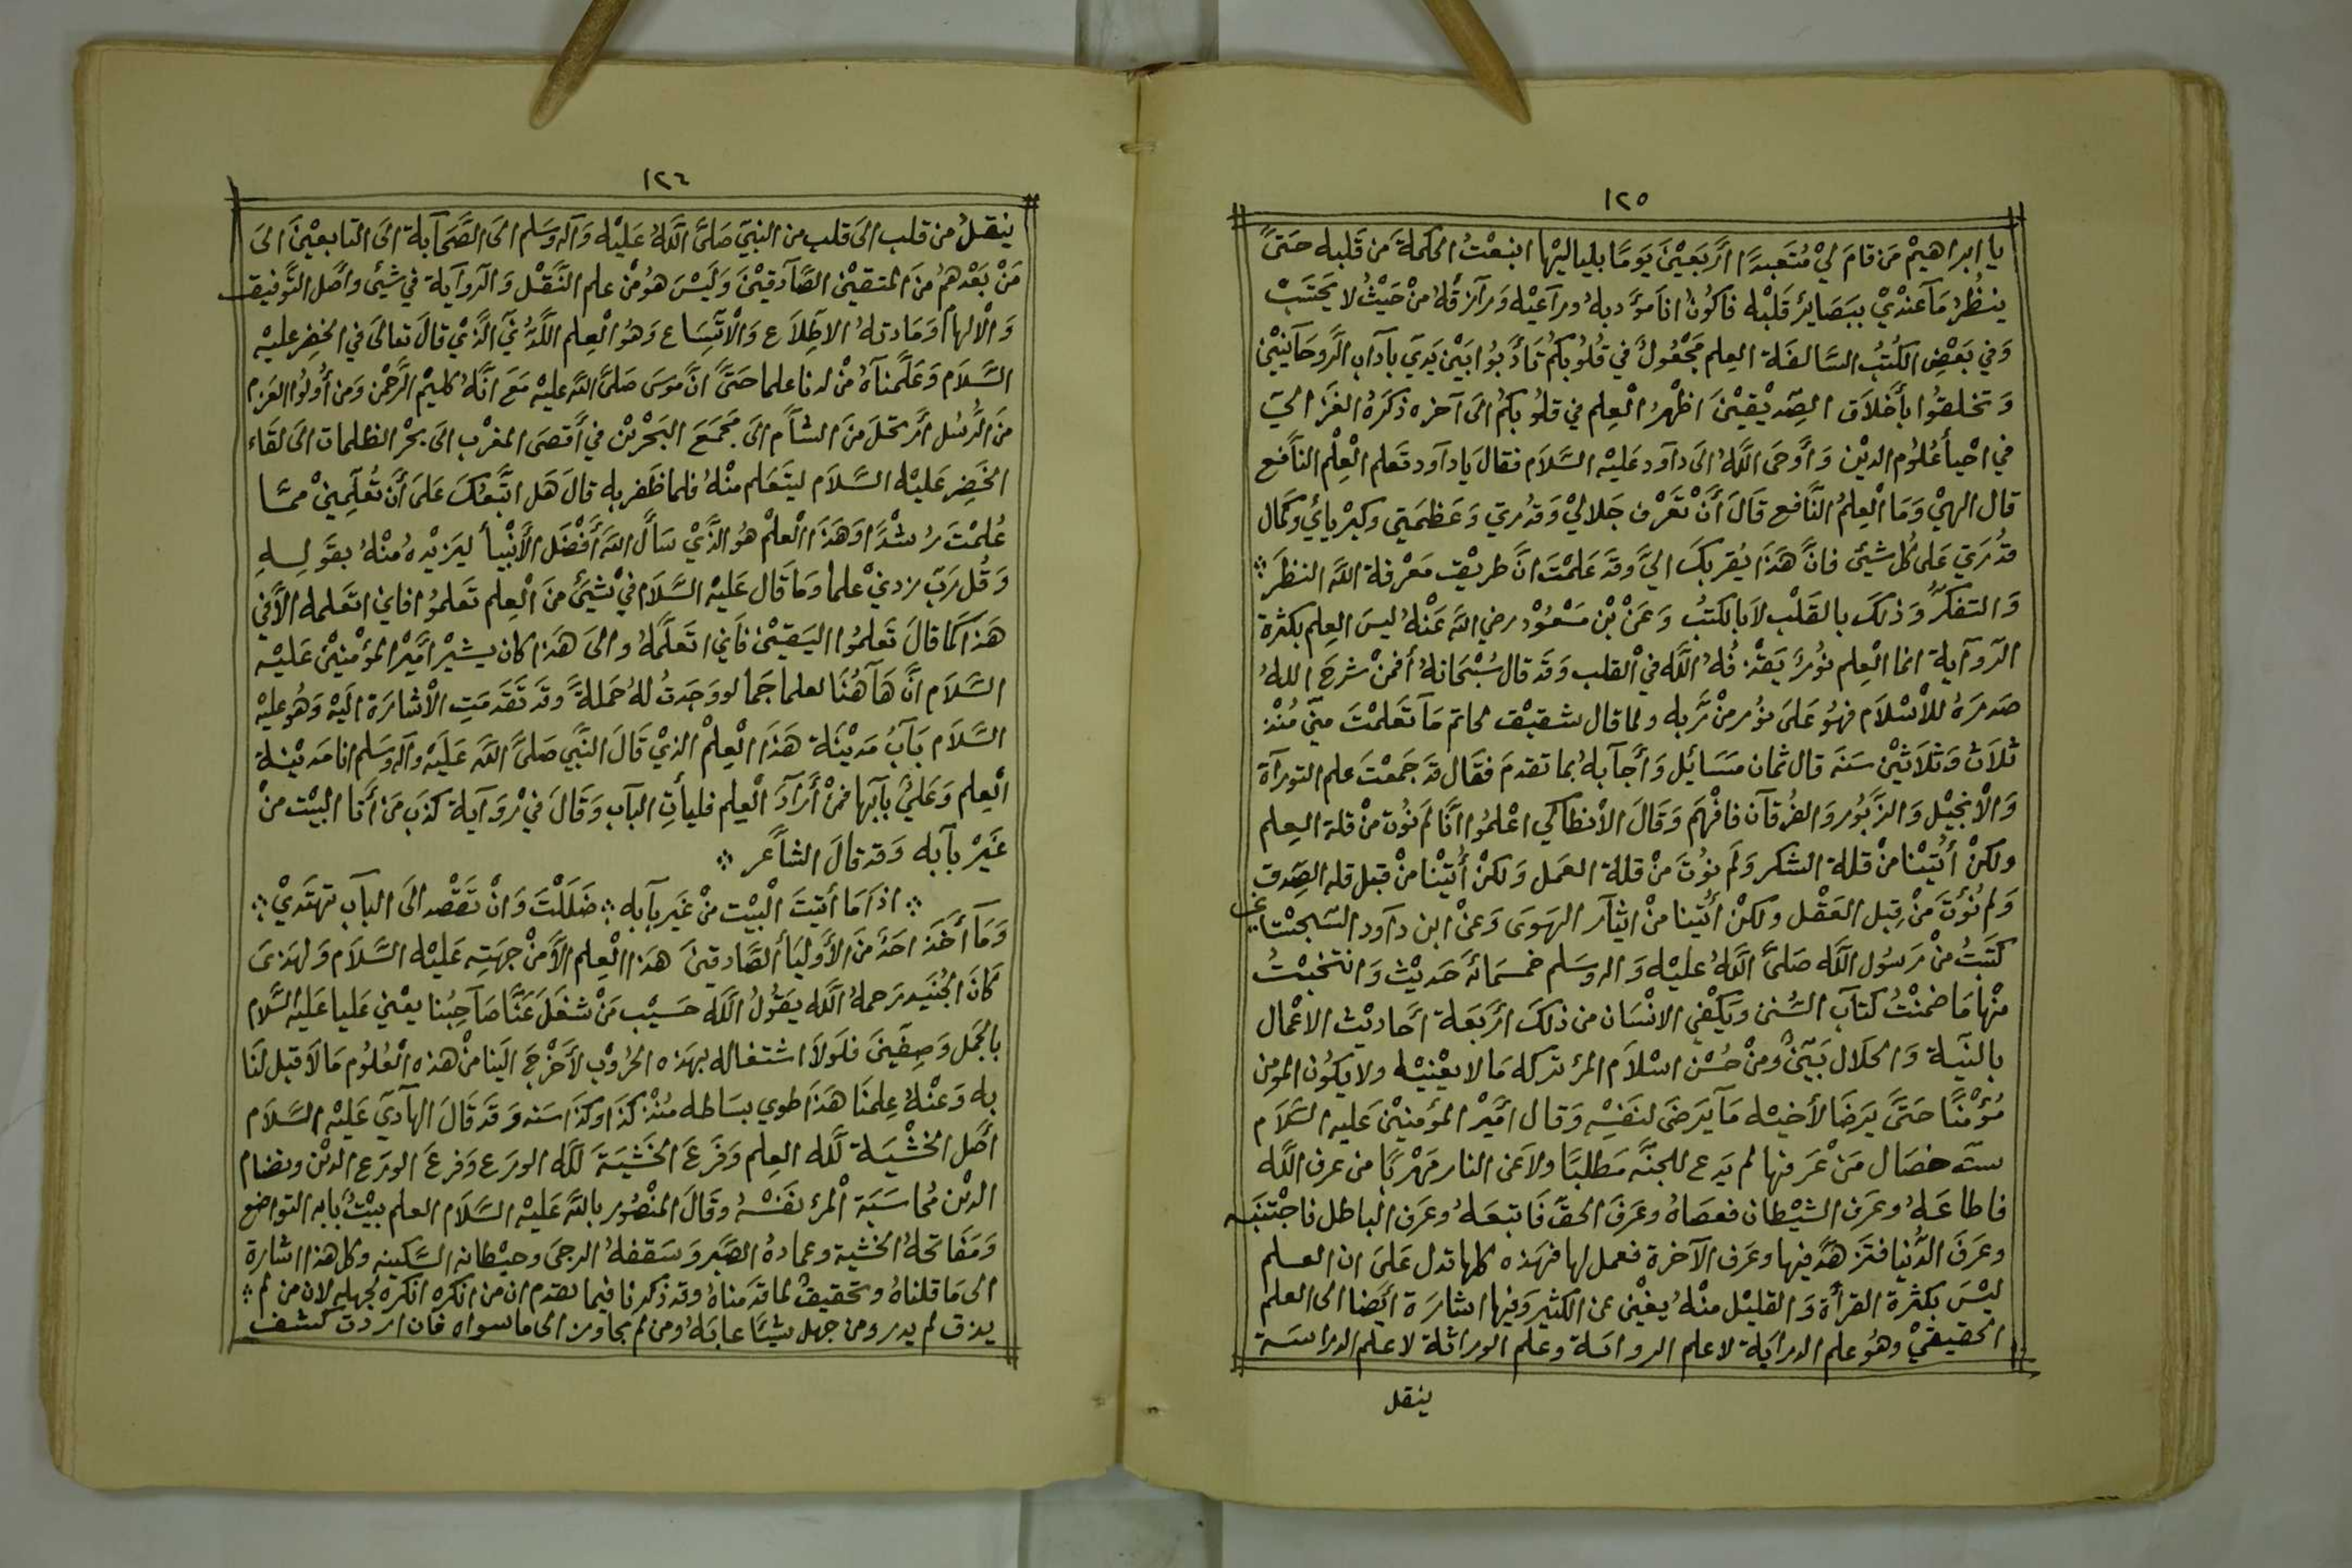 ١٢٥
يا ابراهيم من قام لي متعبدًا أربعين يومًا بلياليها انبعث الحكمة من قلبه حتى
ينظر ما عندي ببصائر قلبه فاكون انا مؤدبه وراعيه ورازقه من حيث لا يحتسب
وفي بعض الكتب السالفة العلم مجعول في قلوبكم تأدبوا بين يدي بآداب الروحانيين
وتخلقوا بأخلاق الصديقين اظهر العلم في قلوبكم الى آخره ذكره الغزالي
في احيأ علوم الدين وأوحى الله الى دآود عليه السلام فقال يا دآود تعلم العلم النافع
قال الهي وما العلم النافع قال أن تعرف جلالي وقدرتي وعظمتي وكبريائي وكمال
قدرتي على كل شيئ فان هذا يقربك الي وقد علمت ان طريق معرفة الله النظر ؞
والتفكر وذلك بالقلب لا بالكتب وعن بن مسعود رضي الله عنه ليس العلم بكثرة
الروآية انما العلم نور يقذفه الله في القلب وقد قال سبحانه أفمن شرح الله
صدره للأسلام فهو على نور من ربه ولما قال شقيق لحاتم ما تعلمت مني منذ
ثلاث وثلاثين سنه قال ثمان مسائيل وأجآبه بما تقدم فقال قد جمعت علم التورآة
والأنجيل والزبور والفرقان فافهم وقال الأنطاكي اعلموا انا لم نؤت من قلة العلم
ولكن أتينا من قلة الشكر ولم نؤت من قلة العمل ولكن أتينا من قبل قله الصدق
ولم نؤت من قبل العقل ولكن أتينا من ايثار الهوى وعن ابن دآود السجستاني
كتبت من رسول الله صلى الله عليه واله وسلم خمسمائة حديث وانتخبت
منها ما ضمنت كتاب السنن ويكفي الانسان من ذلك أربعة أحاديث الاعمال
بالنية والحلال بين ومن حسن اسلام المرء تركه ما لا يعنيه ولا يكون المومن
مؤمنًا حتى يرضا لأخيه ما يرضى لنفسه وقال أمير المؤمنين عليه السلام
سته خصال من عرفها لم يدع للجنه مطلبًا ولا عن النار مهربًا من عرف الله
فاطاعه وعرف الشيطان فعصاه وعرف الحق فاتبعه وعرف الباطل فاجتنبه
وعرف الدنيا فتزهد فيها وعرف الآخرة فعمل لها فهذه كلها تدل على ان العلم
ليس بكثرة القرأة والقليل منه يغني عن الكثير وفيها اشارة ايضا الى العلم
الحقيقي وهو علم الدراية لا علم الرواية وعلم الوراثة لا علم الدراسة
ينقل
١٢٦
ينقل من قلب الى قلب من النبي صلى الله عليه وآله وسلم الى الصحابة الى التابعين الى
من بعدهم من المتقين الصآدقين وليس هو من علم النقل والروآية في شيئ وأصل التوفيق
والالهآ ومادته الاطلاع والأتساع وهو العلم اللدني الذي قال تعالى في الخضر عليه
السلام وعلمناه من لدنا علما حتى ان موسى صلى الله عليه مع انه كليم الرحمن ومن أولوا العزم
من الرسل أرتحل من الشأم الى مجمع البحرين في أقصى المغرب الى بحر الظلمات الى لقاء
الخضر عليه السلام ليتعلم منه فلما ظفر به قال هل اتبعك على أن تعلمني مما
علمت رشدًا وهذا العلم هو الذي سأل الله أفضل الأنبيأ ليزيده منه بقوله
وقل رب زدني علما وما قال عليه السلام في شيئ من العلم تعلموا فاني اتعلمه الا في
هذا كما قال تعلموا اليقين فاني اتعلمه والى هذا كان يشير أمير المؤمنين عليه
السلام ان هآهنا لعلما جما لو وجدت له حملة وقد تقدمت الأشارة اليه وهو عليه
السلام باب مدينة هذا العلم الذي قال النبي صلى الله عليه وآله وسلم انا مدينة
العلم وعلي بآبها فمن أرآد العلم فليأت البآب وقال في روآية كذب من أتا البيت من
غير بآبه وقد قال الشاعر ؞
؞ اذا ما أتيت البيت من غير بآبه ؞ ضللت وان تقصد الى الباب تهتدي ؞
وما أخذ احد من الأوليأ الصادقين هذا العلم الا من جهته عليه السلام ولهذى
كان الجنيد رحمه الله يقول الله حسيب من شغل عنا صآحبنا يعني عليا عليه السلام
بالجمل وصفين فلولا اشتغاله بهذه الحروب لأخرج الينا من هذه العلوم ما لا قبل لنا
به وعنه علمنا هذا طوي بساطه منذ كذا وكذا سنه وقد قال الهآدي عليه السلام
أصل الخشية لله العلم وفرع الخشية لله الورع وفرع الورع الدين ونظام
الدين محاسبة المرء نفسه وقال المنصور بالله عليه السلام العلم بيت بابه التواضع
ومفاتحه الخشية وعماده الصبر وسقفه الرجى وحيطانه السكينه وكل هذا اشارة
الى ما قلناه وتحقيق لما قدمناه وقد ذكرنا فيما تقدم ان من انكره انكره لجهله لان من لم ؞
يذق لم يدر ومن جهل شيئا عابه ومن لم يجاوز الى ما سواه فان اردت كشف